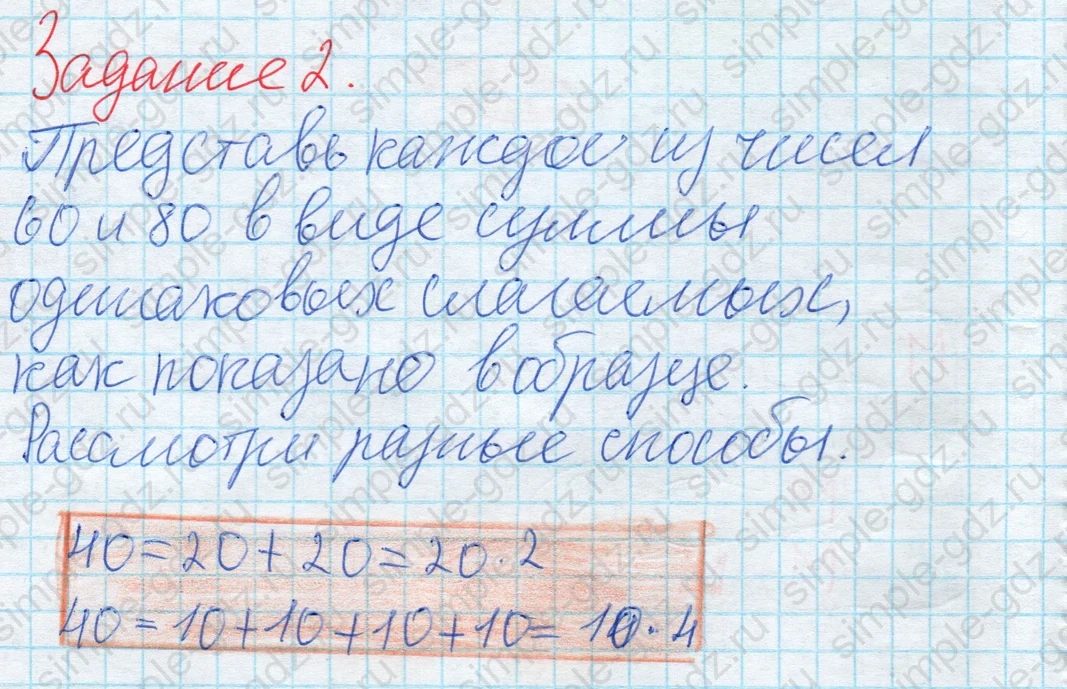 Задание 2.
Представь каждое из чисел
60 и 80 в виде суммы
одинаковых слагаемых,
как показано в образце.
Рассмотри разные способы.
40 = 20 + 20 = 20 · 2
40 = 10 + 10 + 10 + 10 = 10 · 4
simple-gdz.ru